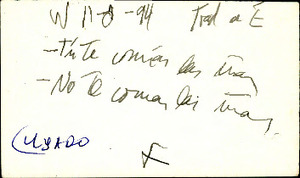 W 11-8-94 Trad a É
-Tú te comías las uñas
-No te comas las uñas.
USADO